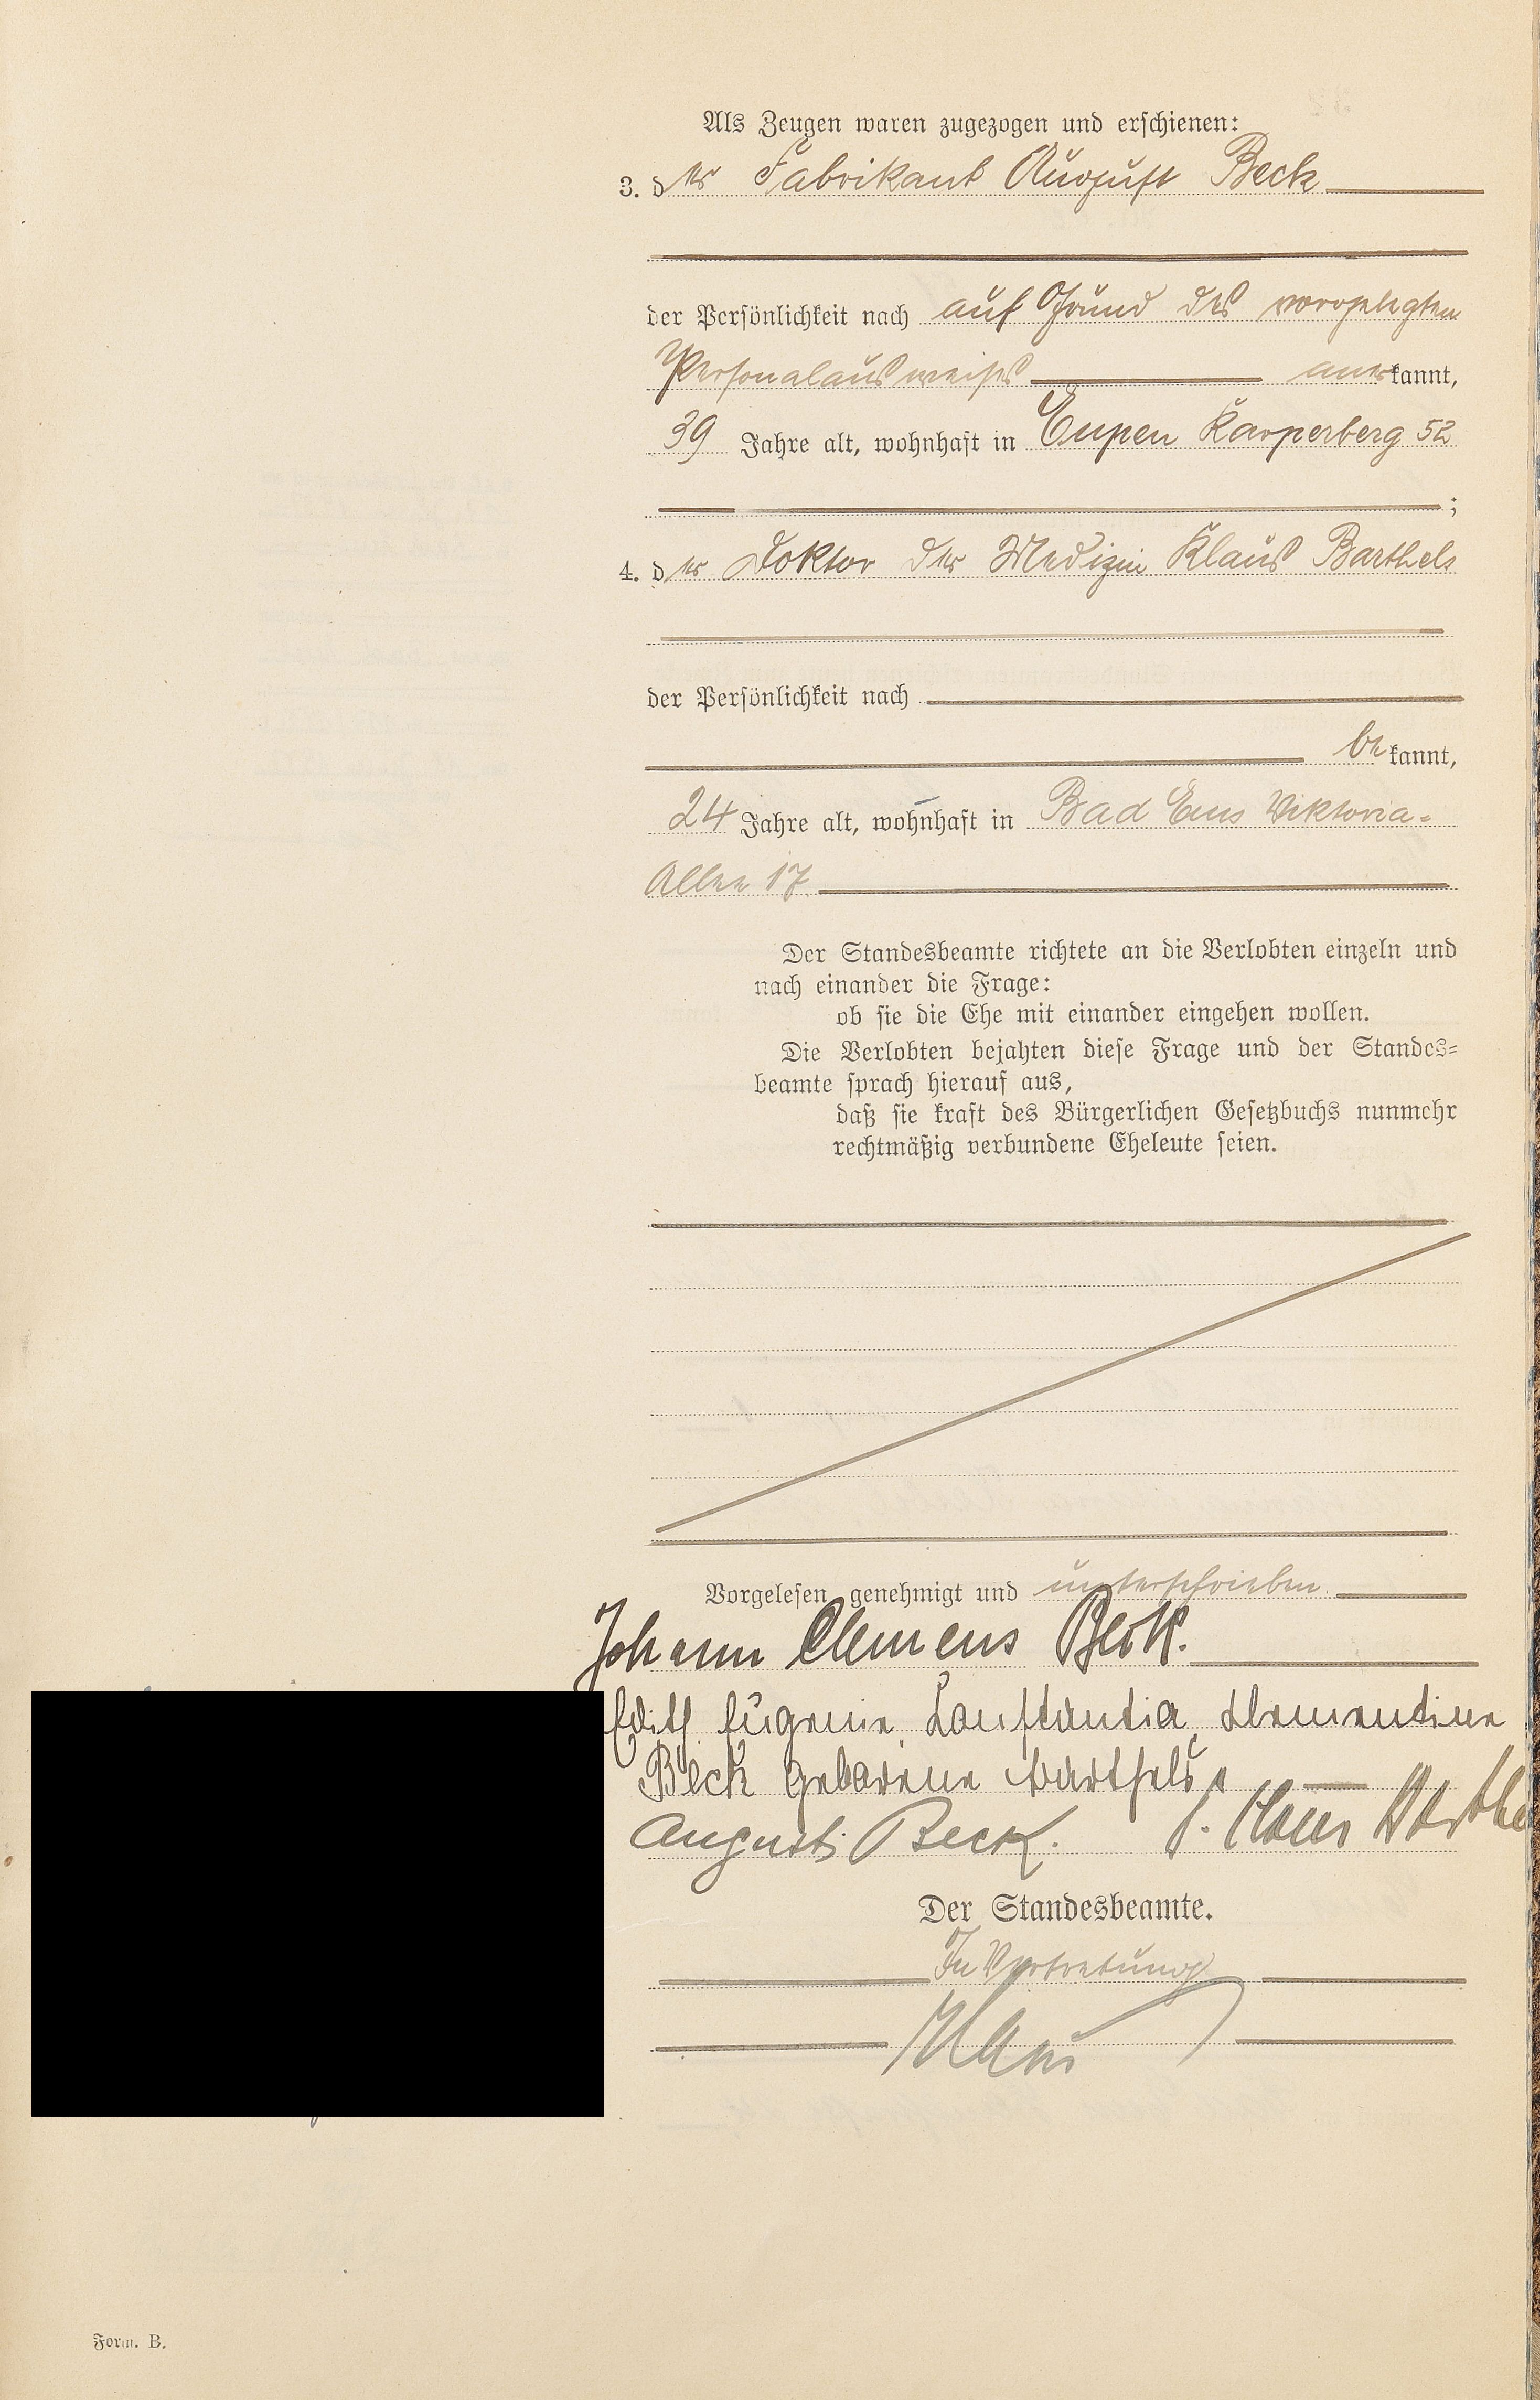 Als Zeugen waren zugezogen und erschienen:
3. der Fabrikant August Beck
der Persönlichkeit nach auf Grund des vorgelegten
Personalausweises anerkannt,
39 Jahre alt, wohnhaft in Eupen Karperberg 52
;
4. der Doktor der Medizin Klaus Barthels
der Persönlichkeit nach
bekannt,
24 Jahre alt, wohnhaft in Bad Ems Viktoria-
Allee 17
Der Standesbeamte richtete an die Verlobten einzeln und
nach einander die Frage:
ob sie die Ehe mit einander eingehen wollen.
Die Verlobten bejahten diese Frage und der Standes-
beamte sprach hierauf aus,
daß sie kraft des Bürgerlichen Gesetzbuchs nunmehr
rechtmäßig verbundene Eheleute seien.
Vorgelesen, genehmigt und unterschrieben.
Johann Clemens Beck.
Edith Eugenie Konstantia Klementine
Beck geborene Barthels
August Beck. Klaus Barthels
Der Standesbeamte.
In Vertretung
Form. B.